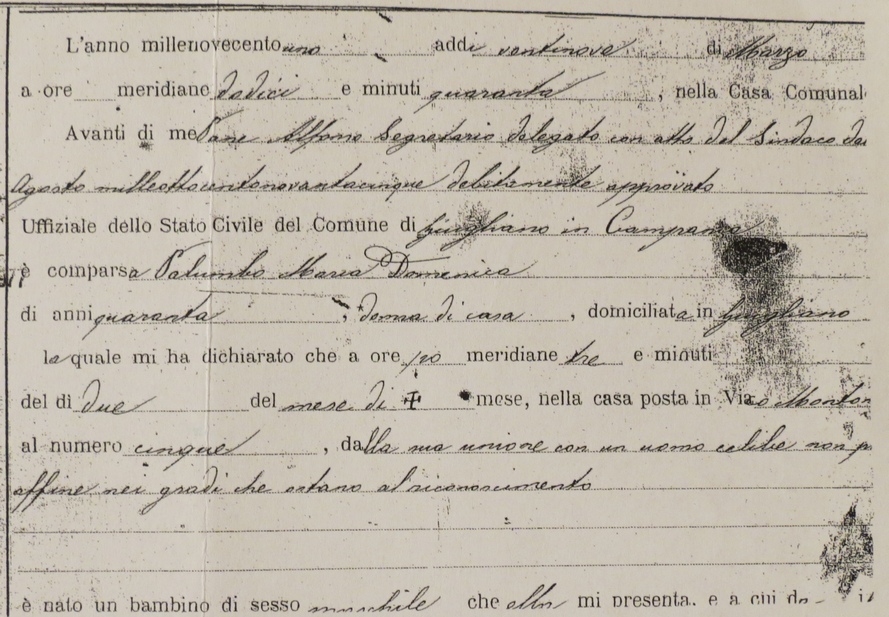 L'anno millenovecento uno addì ventinove di Marzo
a ore meridiane dodici e minuti quaranta, nella Casa Comunal
Avanti di me Pane Alfonso Segretario delegato con atto del Sindaco
Agosto milleottocentonovantacinque debitamente approvato
Uffiziale dello Stato Civile del Comune di Giugliano in Campania
è comparsa Palumbo Maria Domenica
di anni quaranta, donna di casa, domiciliata in Giugliano
la quale mi ha dichiarato che a ore meridiane tre e minuti
del dì due del mese di mese, nella casa posta in Vico
al numero cinque, dalla sua unione con un uomo celibe non
affine nei gradi che ostano al riconoscimento
è nato un bambino di sesso maschile che ella mi presenta, e a cui